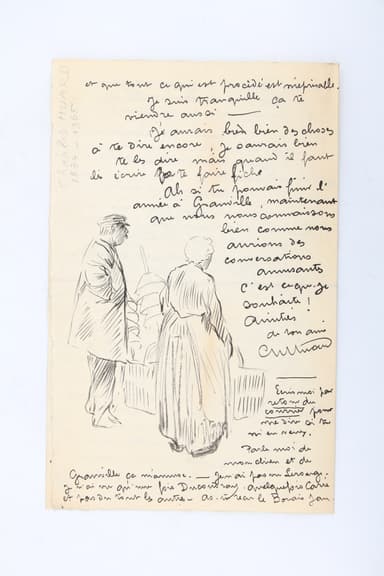 et que tout ce qui est procédé est méprisable.
Je suis tranquille ça te
viendra aussi —
J'aurais bien bien des choses
à te dire encore, je saurais bien
te les dire mais quand il faut
les écrire te faire fiche
Ah si tu pouvais finir l'
année à Granville, maintenant
que nous nous connaissons
bien comme nous
aurions des
conversations
amusantes
c'est ce que je
souhaite !
Amitiés
de ton ami
Ecris moi par
retour du
courrier pour
me dire si tu
Parle moi de
et de
Granville ça m'amuse. — Je n'ai pas vu
Je n'ai vu qu'une fois quelquefois
et pas du tout les autres — as-tu le